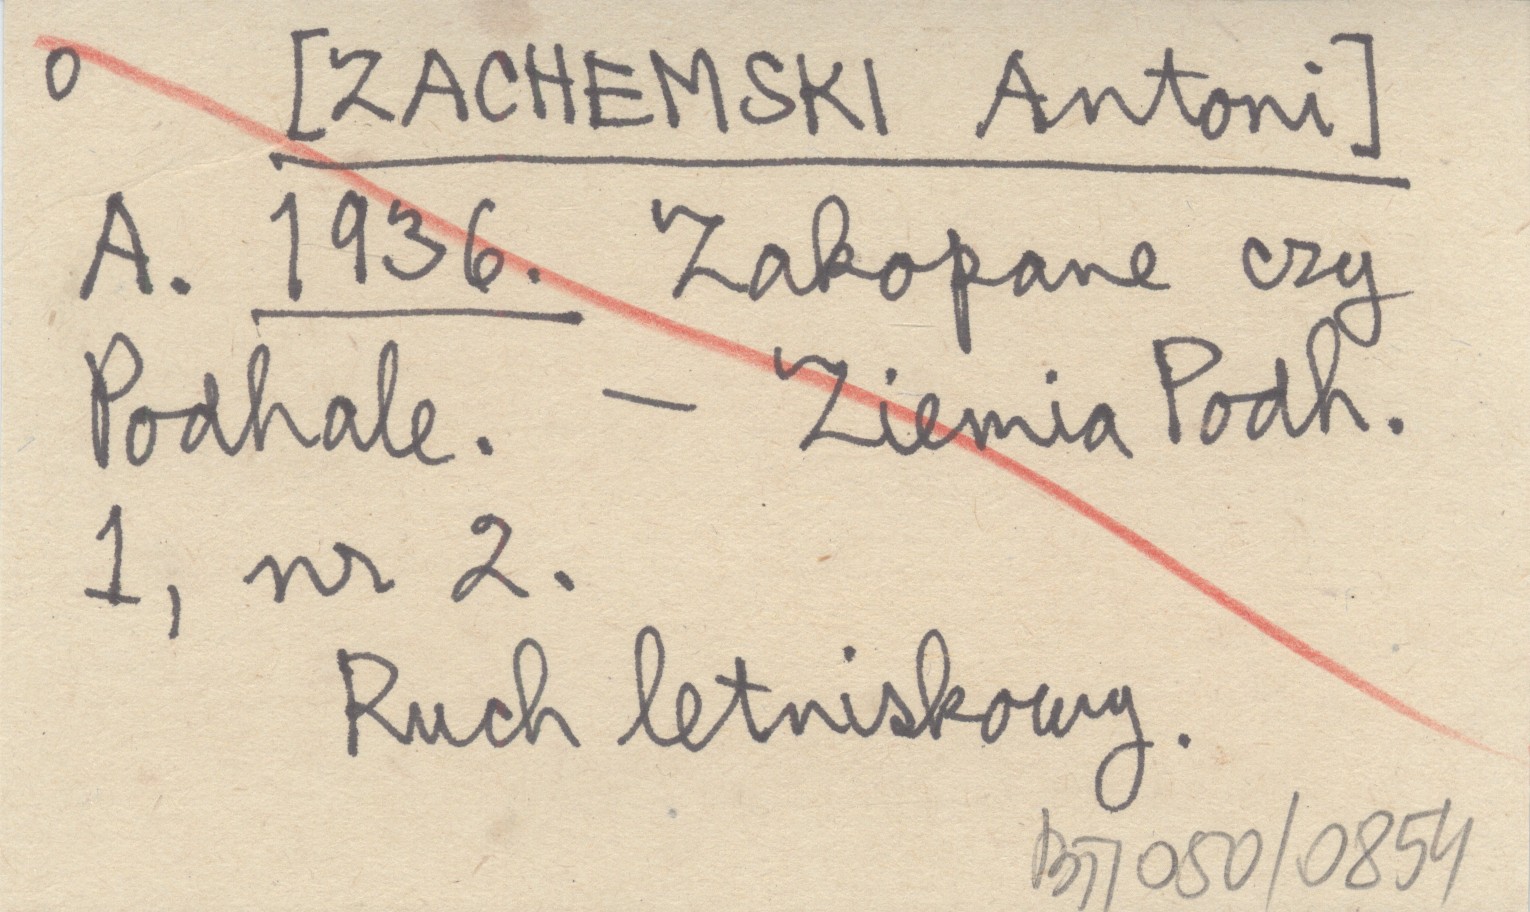 o [ZACHEMSKI Antoni]
A. 1936. Zakopane czy
Podhale. — Ziemia Podh.
1, nr 2.
Ruch letniskowy.
050/0854